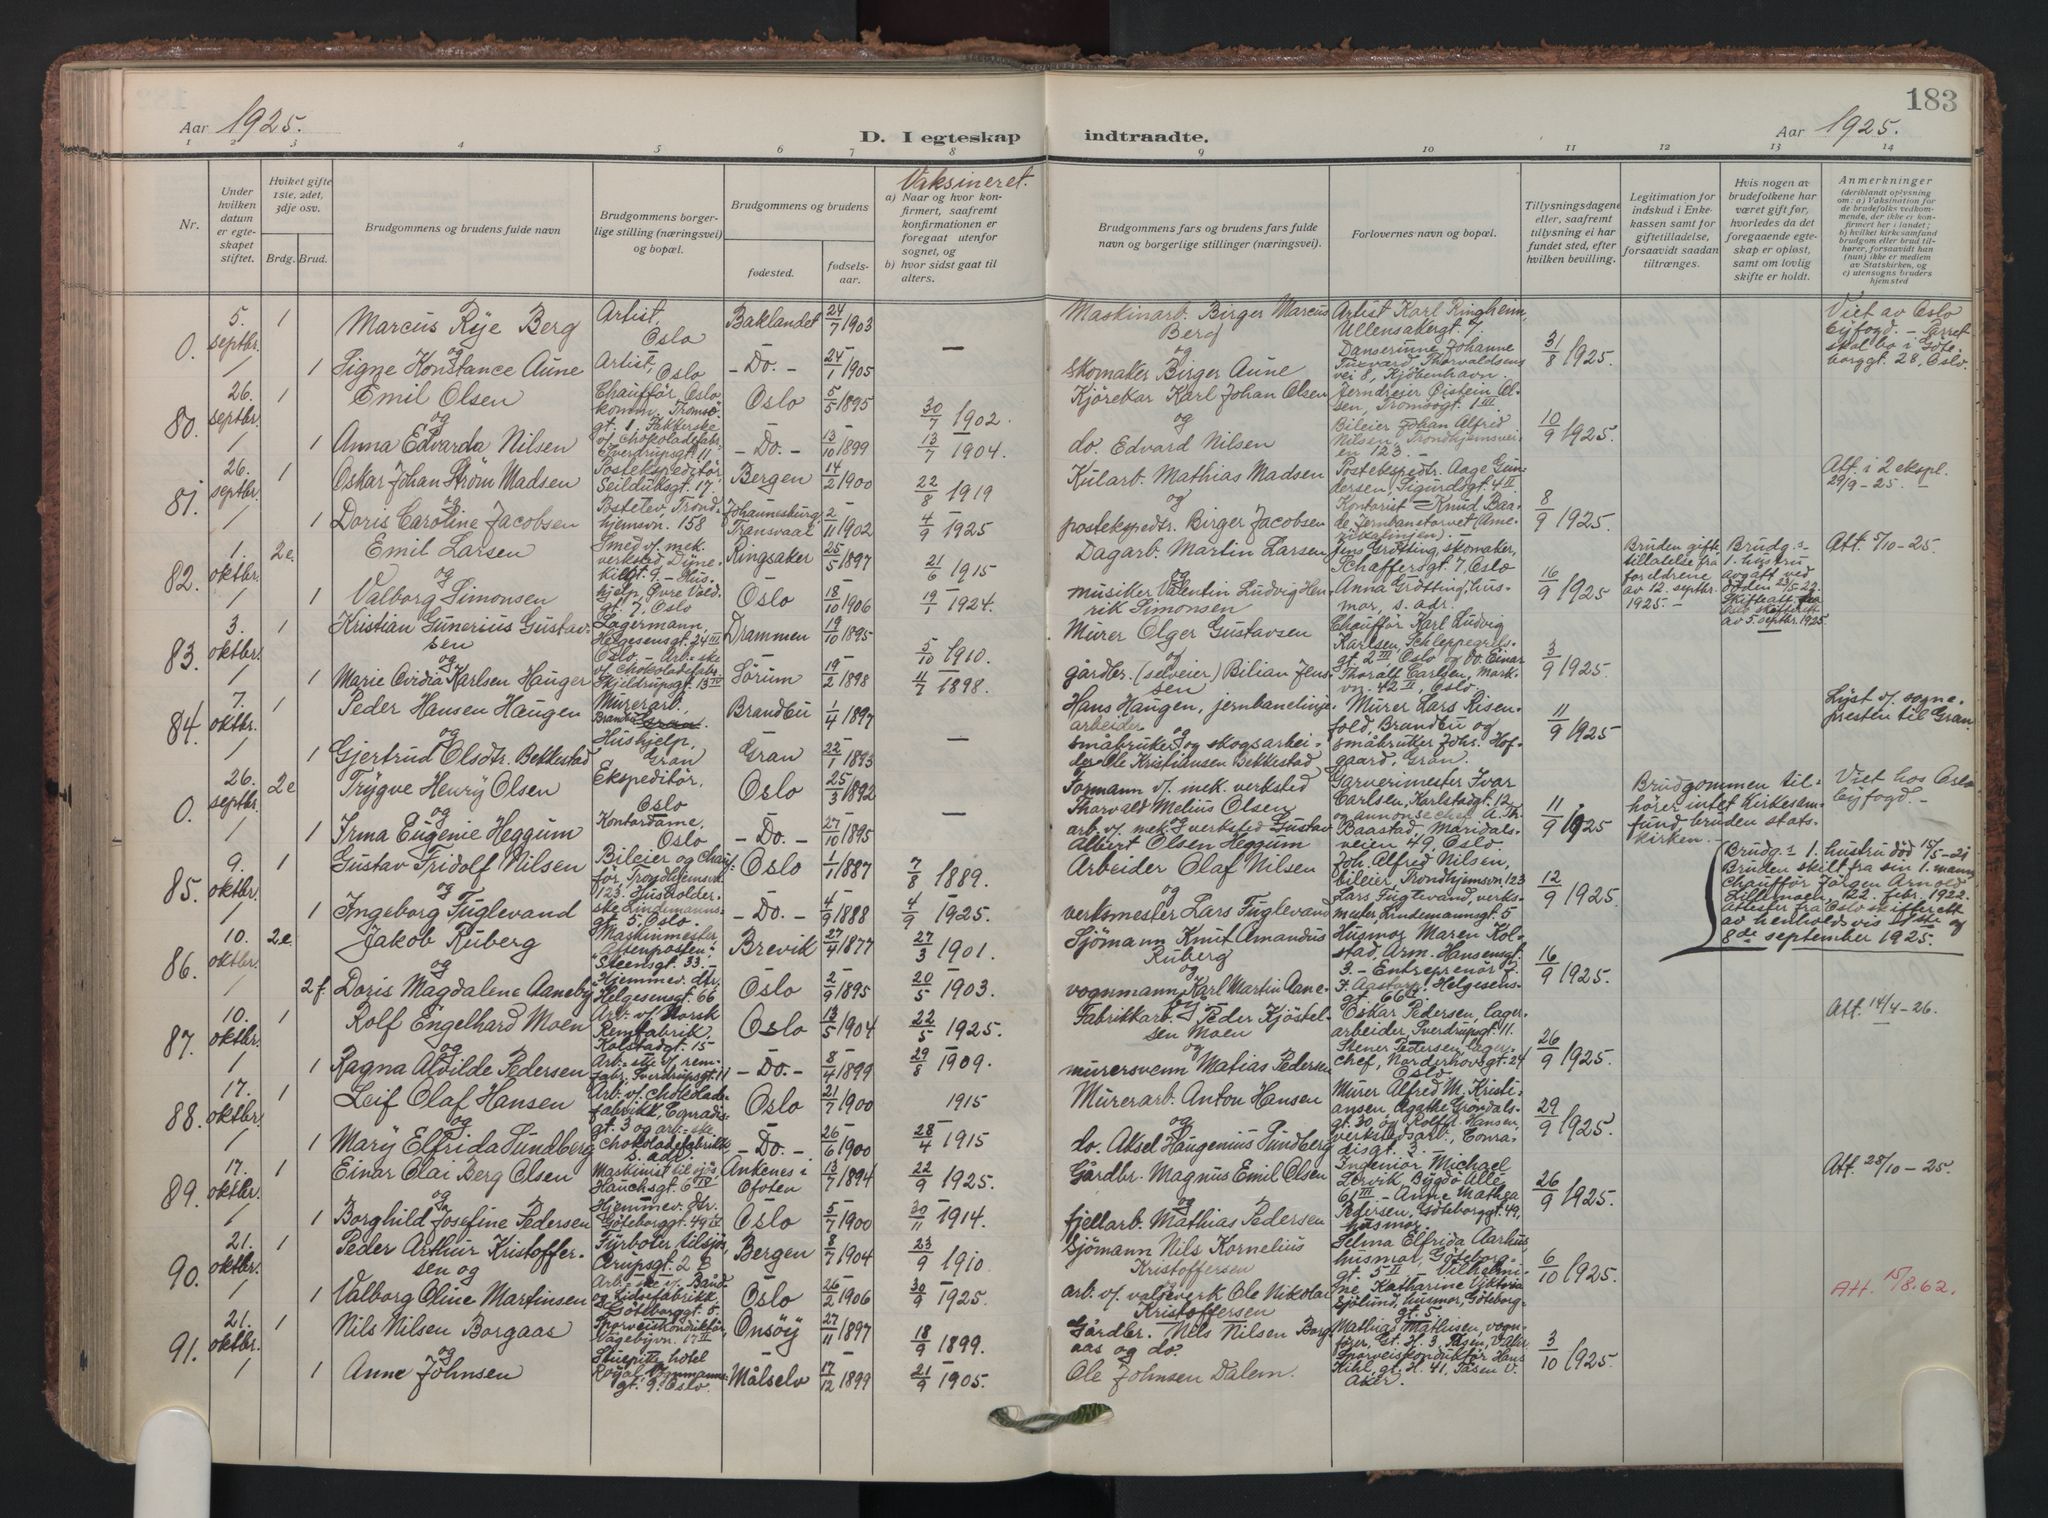 183
Aar 1925.
D. I egteskap indtraadte.
Aar 1925.
1 2 3 4 5 6 7 8 9 10 11 12 13 14
Vaksineret.
Nr.
Under hvilken datum er egteskapet stiftet.
Hviket gifte 1ste, 2det, 3dje osv.
Brdg. Brud.
Brudgommens og brudens fulde navn
Brudgommens borgerlige stilling (næringsvei) og bopæl.
Brudgommens og brudens
fødested.
fødselsaar.
a) Naar og hvor konfirmert, saafremt konfirmationen er foregaat utenfor sognet, og
b) hvor sidst gaat til alters.
Brudgommens fars og brudens fars fulde navn og borgerlige stillinger (næringsvei).
Forlovernes navn og bopæl.
Tillysningsdagene eller, saafremt tillysning ei har fundet sted, efter hvilken bevilling.
Legitimation for indskud i Enkekassen samt for giftetilladelse, forsaavidt saadan tiltrænges.
Hvis nogen av brudefolkene har været gift før, hvorledes da det foregaaende egteskap er opløst, samt om lovlig skifte er holdt.
Anmerkninger
(deriblandt oplysning om: a) Vaksination for de brudefolks vedkommende, der ikke er konfirmert her i landet; b) hvilket kirkesamfund brudgom eller brud tilhører, forsaavidt han (hun) ikke er medlem av Statskirken, og c) utensogns bruders hjemsted
0. 5. septbr. 1 Marcus Rye Berg Artist, Oslo Baklandet 24/7 1903 — Maskinarb. Birger Marcus Berg Artist Karl Ringheim, Ullensakergt. 7. 31/8 1925 Viet av Oslo byfogd. - Parret skal bo i Göteborggt. 28, Oslo.
og
1 Signe Konstance Aune Artist, Oslo - Do. - 24/1 1905 skomaker Birger Aune Danserinne Johanne Tuxværd, Thorvaldsens vei 8, Kjöbenhavn.
80. 26. septbr. 1 Emil Olsen Chaufför, Oslo komm., Tromsögt. 1. Oslo 5/5 1895 30/7 1902. Kjörekar Karl Johan Olsen Jerndreier Öistein Olsen, Tromsögt. 1 III. 10/9 1925.
og
1 Anna Edvarda Nilsen Pakkerske v/ chokoladefabr. Sverdrupsgt. 11 - Do. - 13/10 1899 13/7 1904. do. Edvard Nilsen Bileier Johan Alfred Nilsen, Trondhjemsveien 123. -
81. 26. septbr. 1 Oskar Johan Ström Madsen Postekspeditör, Seilduksgt. 17. Bergen 14/2 1900 22/8 1919 Kularb. Mathias Madsen Postekspedtr. Aage Gundersen, Sigurdsgt. 4 II 8/9 1925. Att. i 2 ekspl. 29/9 - 25. -
og
1 Doris Caroline Jacobsen Postelev, Trondhjemsvn. 158 Johannesburg, Transvaal 2/11 1902 4/9 1925 postekspedtr. Birger Jacobsen Kontorist Knud Baade, Jernbanetorvet
82. 1. oktbr. 2e. Emil Larsen Smed v/ mek. verksted Dynekilgt. 9. Ringsaker 25/5 1897 21/6 1915 Dagarb. Martin Larsen Jens Grötting, skomaker, Schaffersgt. 7, Oslo 16/9 1925 Bruden gift. tillatelse fra foreldrene av 12. septbr. 1925. - Brudg.s 1. hustru avgått ved döden 23/5-22. Skifteatt. fra Oslo skifterett av 5. septbr. 1925. Att. 5/10 - 25.
og
1 Valborg Simonsen Hushjelp, Övre Vold.gt. 7, Oslo Oslo 18/10 1906 19/1 1924. musiker Valentin Ludvig Henrik Simonsen Anna Grötting, husmor, s. adr.
83. 3. oktbr. 1 Kristian Gunerius Gustavsen Lagermann, Helgesensgt. 24 III Oslo. Drammen 19/10 1895 5/10 1910. Murer Olger Gustavsen Chaufför Karl Ludvig Karlsen, Schleppegrelsgt. 2 III, Oslo 3/9 1925
og
1 Marie Ovidia Karlsen Hauger Arb.ske v/ chokoladefabr. Skjeldrupsgt. 13 IV Sörum 19/2 1898 11/7 1898. gårdbr. (selveier) Bilian Jenssen og do. Einar Thoralf Carlsen, Markvn. 42 II, Oslo.
84. 7. oktbr. 1 Peder Hansen Haugen Murerarb., Brandbu Brandbu 1/4 1897 — Hans Haugen, jernbanelinjearbeider Murer Lars Risenfold, Brandbu og 11/9 1925 Lyst v. sognepresten til Gran.
og
1 Gjertrud Olsdtr. Bekkestad Hushjelp, Gran Gran 22/1 1893 småbruker og skogsarbeider Ole Kristiansen Bekkestad småbruker Johs. Hofgaard, Gran.
0. 26. septbr. 2e Trygve Henry Olsen Ekspeditör, Oslo Oslo 25/3 1892 — Formann v/ mek. verksted Thorvald Melius Olsen Garverimester Ivar Carlsen, Karlstadgt. 12 11/9 1925 Brudgommen tilhörer intet kirkesamfund, bruden statskirken. - Viet hos Oslo byfogd. -
og
1 Irma Eugenie Heggum Kontordame, Oslo - Do. - 27/10 1895 arb. v/ mek. verksted Gustav Albert Olsen Heggum og annonsechef A. Th. Baastad, Maridalsveien 49, Oslo.
85. 9. oktbr. 1 Gustav Fridolf Nilsen Bileier og chaufför, Trondhjemsvn. 123. Oslo 1/7 1887 7/8 1889. Arbeider Olaf Nilsen Joh. Alfred Nilsen, bileier, Trondhjemsvn. 123 12/9 1925.
og
1 Ingeborg Fuglevand Husholderske Lindemannsgt. 5, Oslo. - Do. - 4/9 1888 4/9 1925. verksmester Lars Fuglevand Lars Fuglevand, verksmester Lindemannsgt. 5
86. 10. oktbr. 2e. Jakob Ruberg Maskinmester "Aftenposten". Steensgt. 33. - Brevik 27/4 1877 27/3 1901. Sjömann Knut Amandus Ruberg Husmor Maren Kolstad, Arm. Hansensgt. 3. 16/9 1925. Brudg.s 1. hustru död 15/5-21 Bruden skilt fra sin 1. mann chaufför Jörgen Arnold Lillemoen, 22. febr. 1922. Atester fra Oslo skifterett av henholdsvis og 8de september 1925.
og
2 f. Doris Magdalene Aaneby Hjemmev. dtr. Helgesensgt. 66 Oslo 2/9 1895 20/5 1903. vognmann Karl Martin Aaneby. - Entreprenör F. Aastorp, Helgesensgt. 66 II
87. 10. oktbr. 1 Rolf Engelhard Moen Arb. v/ Norsk Remfabrik, Kolstadgt. 15- Oslo 13/5 1904 22/5 1925. Fabrikkarb. Peder Kjöstelsen Moen Oskar Pedersen, lagerarbeider, Sverdrupsgt. 11. 26/9 1925. Att. 14/4 - 26.
og
1 Ragna Alvilde Pedersen Arb.-ske v/ remfabr. Sverdrupsgt. 11 - Do. - 8/4 1899 29/8 1909. murersvenn Matias Pedersen Stener Pedersen, lagerchef, Norderhovsgt. 24 Oslo
88. 17. oktbr. 1 Leif Olaf Hansen Arb. v/ chokoladefabrikk, Conradisgt. 3 Oslo 21/7 1900 1915 Murerarb. Anton Hansen Murer Alfred M. Kristiansen, Agathe Gröndalsgt. 30, og Rolf H. Hansen, verkstedsarb., Conradisgt. 3. - 29/9 1925.
og
1 Mary Elfrida Sundberg og arb.-ske chokoladefabrikk s. adr. - Do. - 26/6 1900 28/4 1915 do. Aksel Haugenius Sundberg
89. 17. oktbr. 1 Einar Olai Berg Olsen Maskinist til sjös, Hauchsgt. 6 IV. Ankenes i Ofoten 13/7 1894 22/9 1925. Gårdbr. Magnus Emil Olsen Ingeniör Michael Lervik, Bygdö Alle 61 III. 26/9 1925. Att. 28/10 - 25.
og
1 Borghild Josefine Pedersen Hjemmev. dtr. Göteborggt. 49 II. Oslo 5/7 1900 30/11 1914. fjellarb. Mathias Pedersen - Anne Mathea Pedersen, Göteborggt. 49, husmor.
90. 21. oktbr. 1 Peder Arthur Kristoffersen og Fyrböter tilsjös, Cerupsgt. 2 B Bergen 8/7 1904 23/9 1910. Sjömann Nils Kornelius Kristoffersen Selma Elfrida Aarhus, husmor, Göteborggt. 5 II 6/10 1925. Att. 15/8.62.
1 Valborg Oline Martinsen Arb.ske v. Bånd og Lidsefabrikk. Göteborggt. 5. Oslo 26/2 1906 30/9 1925. arb. v/ valseverk Ole Nikolai Kristoffersen Vilhelmine Katharine Viktoria Sjölund, husmor, Göteborggt. 5.
91. 21. oktbr. 1 Nils Nilsen Borgaas Sporveiskonduktör, Vågebyvn. 17 II Onsöy 27/11 1897 18/9 1899. Gårdbr. Nils Nilsen Borgaas og do. Mathias Mathisen, vognförer, Gt. H. 3, Tåsen, V. Aker 3/10 1925.
og
1 Anne Johnsen Stuepike hotel Royal Oslo. Målselv 17/12 1899 21/9 1905. Ole Johnsen Dalem. Sporveiskonduktör Hans Kihl, gt. H. 41, Tåsen V. Aker.